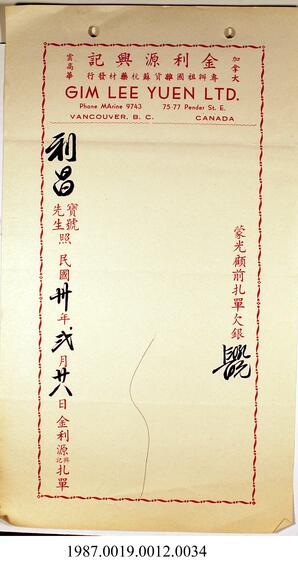 加拿大
金利源興記
雲高華
專辦祖國雜貨蘇杭藥材發行
GIM LEE YUEN LTD.
Phone MArine 9743 75-77 Pender St. E.
VANCOUVER, B. C. CANADA
蒙光顧前扎單欠銀
利昌寶號先生照民國卅年弍月廿八日金利源興記扎單
1987.0019.0012.0034